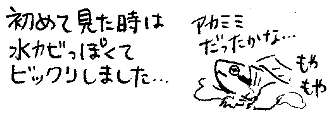 初めて見た時は
水カビっぽくて
ビックリしました…
アカミミ
だったかな…
もや
もや